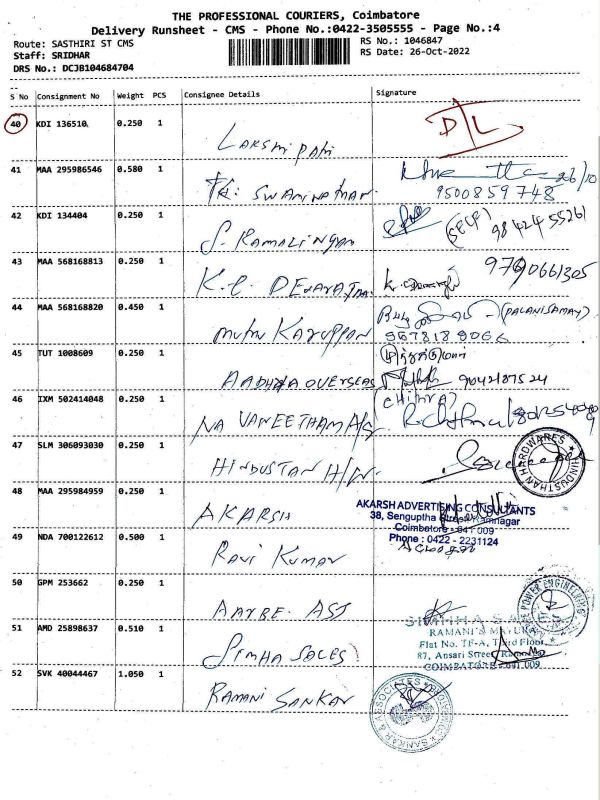 THE PROFESSIONAL COURIERS, Coimbatore
Delivery Runsheet - CMS - Phone No.:0422-3505555 - Page No.:4
Route: SASTHIRI ST CMS
RS No.: 1046847
Staff: SRIDHAR
RS Date: 26-Oct-2022
DRS No.: DCJB104684704
S No Consignment No Weight PCS Consignee Details Signature
40 KDI 136510 0.250 1 LAKSHMIPATHI D/L
41 MAA 295986546 0.580 1 TR: SWAMINATHAN 26/10
9500859748
42 KDI 134404 0.250 1 S. RAMALINGAM (SELF) 98424 55261
43 MAA 568168813 0.250 1 K.C. DEVARAJAN 9790661305
44 MAA 568168820 0.450 1 MUTHU KARUPPAN (PALANISAMAY)
45 TUT 1008609 0.250 1 AADHYA OVERSEAS
46 IXM 502414048 0.250 1 NAVANEETHAM A/G (CHITRA)
47 SLM 306093030 0.250 1 HINDUSTAN H/W
HINDUSTHAN HARDWARES
48 MAA 295984959 0.250 1 AKARSH
AKARSH ADVERTISING CONSULTANTS
38, Senguptha Street, Ramnagar
Coimbatore - 641 009
Phone : 0422 - 2231124
49 NDA 700122612 0.500 1 RAVI KUMAR
50 GPM 253662 0.250 1 AARBE. ASS
POWER ENGINEERING
51 AMD 25898637 0.510 1 SIMHA SALES
SIMHA SALES
Flat No. TF-A, Third Floor
87, Ansari Street, Ramnagar
COIMBATORE - 641 009
52 SVK 40044467 1.050 1 RAMANI SANKAR
SANKAR & ASSOCIATES